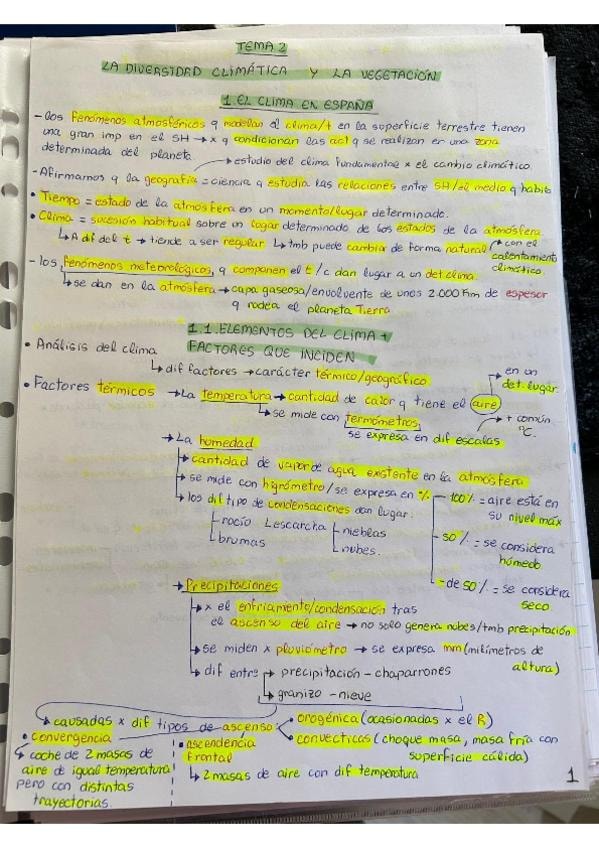 TEMA 2
LA DIVERSIDAD CLIMÁTICA Y LA VEGETACIÓN
1. EL CLIMA EN ESPAÑA
- Los fenómenos atmosféricos q modelan el clima/t en la superficie terrestre tienen
una gran imp en el SH → x q condicionan las act q se realizan en una zona
determinada del planeta
→ estudio del clima fundamental x el cambio climático.
- Afirmamos q la geografía = ciencia q estudia las relaciones entre SH/el medio q habita
• Tiempo = estado de la atmosfera en un momento/lugar determinado.
• Clima = sucesión habitual sobre un lugar determinado de los estados de la atmosfera
↳ A dif del t → tiende a ser regular ↳ tmb puede cambiar de forma natural
→ con el
calentamiento
climático
- los fenómenos meteorológicos, q componen el t/c dan lugar a un det clima.
↳ se dan en la atmósfera → capa gaseosa/envolvente de unos 2.000 Km de espesor
q rodea el planeta Tierra
1.1. ELEMENTOS DEL CLIMA +
FACTORES QUE INCIDEN
• Análisis del clima
↳ dif factores → carácter térmico/geográfico
• Factores térmicos → La temperatura → cantidad de calor q tiene el aire
→ en un
det. lugar
→ + común
ºC.
↳ se mide con termómetros,
se expresa en dif escalas
→ La humedad
→ cantidad de vapor de agua existente en la atmosfera
→ se mide con higrómetro/se expresa en %
→ los dif tipo de condensaciones dan lugar:
rocío escarcha nieblas
brumas nubes.
100% = aire está en
su nivel máx
50% = se considera
húmedo
- de 50% = se considera
seco
→ Precipitaciones
→ x el enfriamento/condensación tras
el ascenso del aire → no solo genera nubes/tmb precipitación
→ se miden x pluviómetro → se expresa mm (milímetros de
altura)
→ dif entre → precipitación - chaparrones
→ granizo - nieve
→ causadas x dif tipos de ascenso:
• orogénica (ocasionadas x el R)
• convecticas (choque masa, masa fría con
superficie cálida)
• convergencia
↳ coche de 2 masas de
aire de igual temperatura
pero con distintas
trayectorias.
• ascendencia
frontal
↳ 2 masas de aire con dif temperatura
1